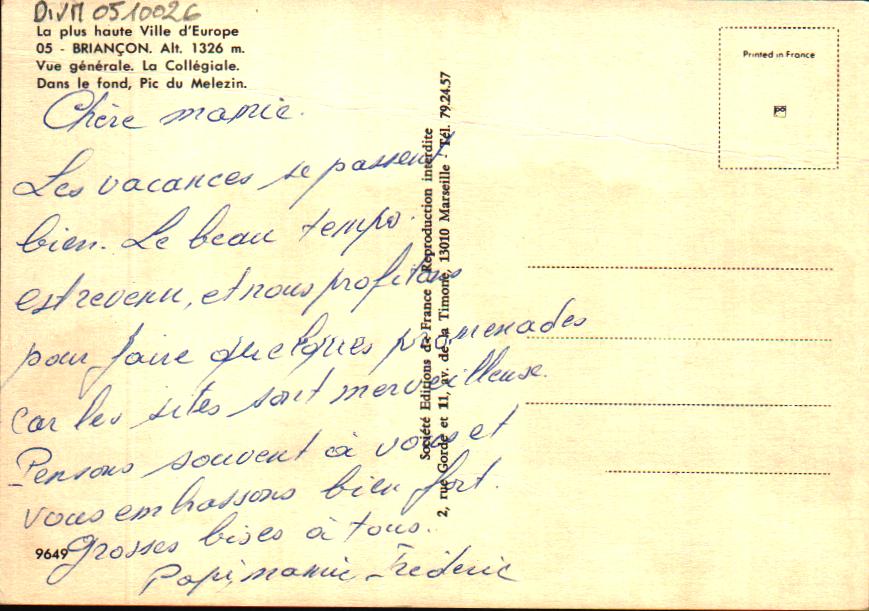 DIVM 0510026
La plus haute Ville d'Europe
05 - BRIANÇON. Alt. 1326 m.
Vue générale. La Collégiale.
Dans le fond, Pic du Melezin.
Chère mamie.
Les vacances se passent
bien. Le beau temps.
est revenu, et nous profitons
pour faire quelques promenades
car les sites sont merveilleuse.
Pensons souvent à vous et
vous embrassons bien fort.
Grosses bises à tous.
Papi, mamie Fréderic
9649
Société Editions de France Reproduction interdite
2, rue Gorde et 11, av. de la Timone, 13010 Marseille - Tél. 79.24.57
Printed in France